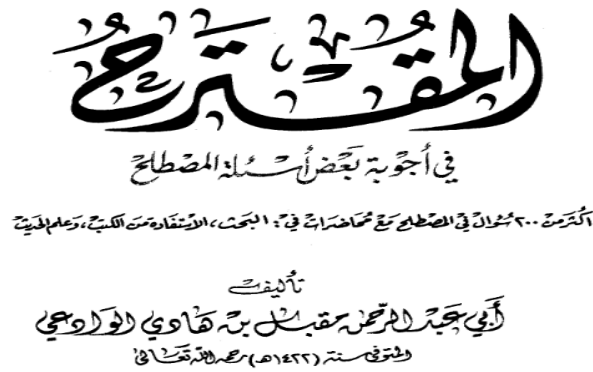 المقترح
في أجوبة بعض أسئلة المصطلح
أكثر من ٢٠٠ سؤال في المصطلح مع محاضرات في: البحث، الاستفادة من الكتب، وعلم الحديث
تأليف
أبي عبد الرحمن مقبل بن هادي الوادعي
المتوفى سنة (١٤٢٢هـ) رحمه الله تعالى